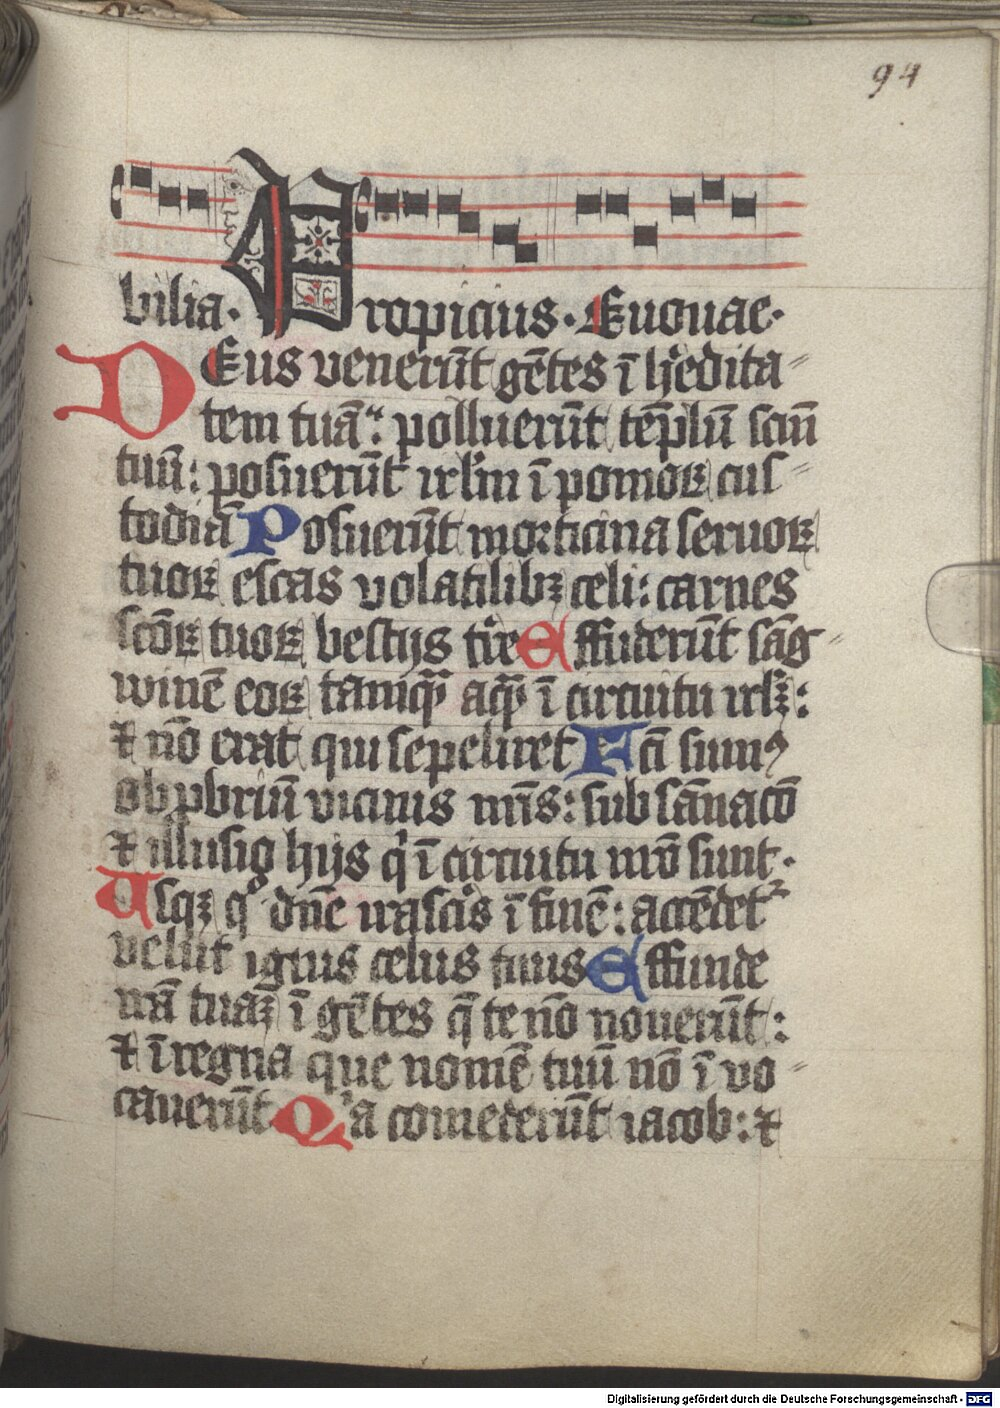 94
bilia. Propicius. Euouae.
DEus venerūt gētes ī hͤedita⸗
tem tuā: polluerūt tēplū scm̄
tuū: posuerūt irlm̄ ī pomoꝝ cus⸗
todiā Posuerūt morticina seruoꝝ
tuoꝝ escas volatilibꝫ celi: carnes
scōꝝ tuoꝝ bestijs tͥre Effuderūt sāg⸗
winē eoꝝ tamqᷓ aqᷓ ī circuitu irlꝫ:
⁊ nō erat qui sepeliret Fcī sumꝰ
obꝓbriū vicinis nr̄is: subsānacō
⁊ illusio hijs qͥ ī circuitu nr̄o sunt.
Vsqꝫ qͦ dn̄e irascͥis ī finē: accēdetᷣ
velut ignis celus tuus Effunde
irā tuaꝫ ī gētes q̄ te nō nouerūt:
⁊ ī regna que nomē tuū nō ī vo⸗
cauerūt Qͥa comederūt iacob: ⁊
Digitalisierung gefördert durch die Deutsche Forschungsgemeinschaft - DFG